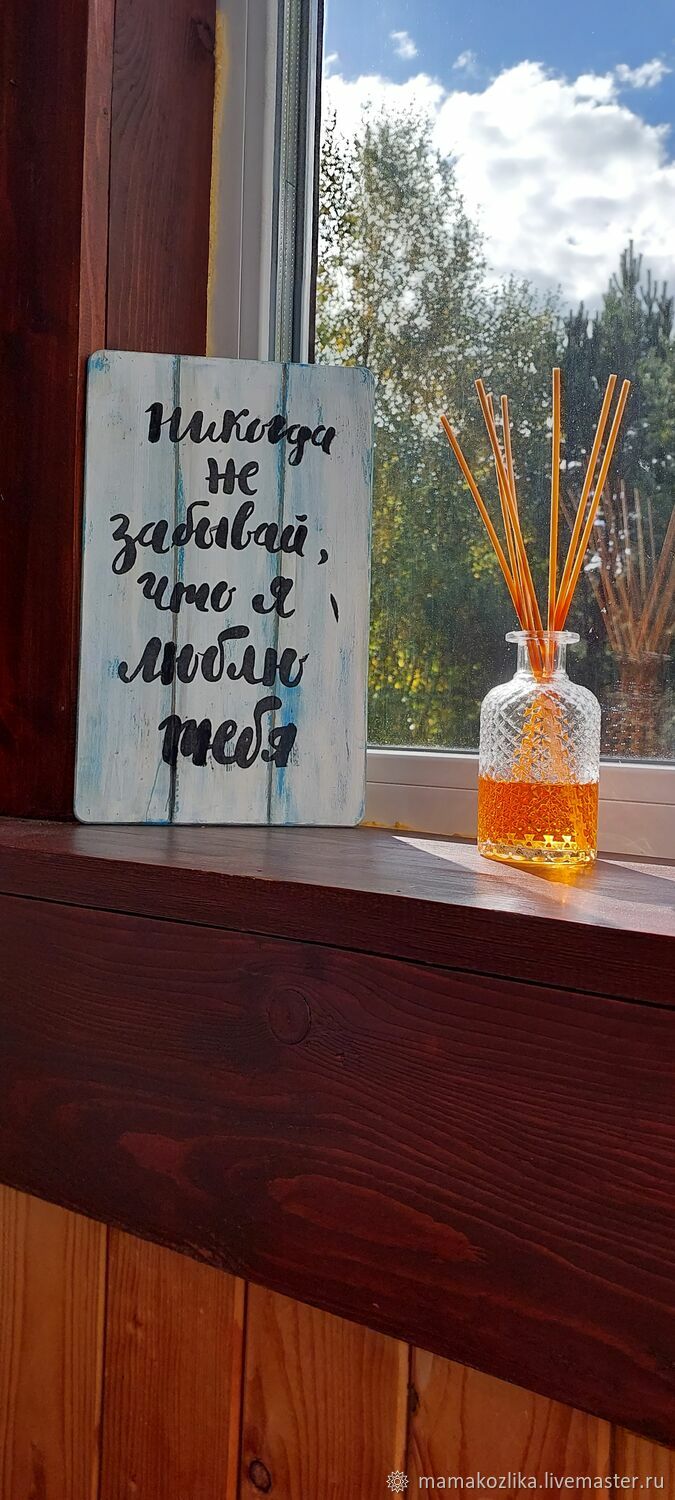 Никогда
не
забывай,
что я
люблю
тебя
mamakozlika.livemaster.ru